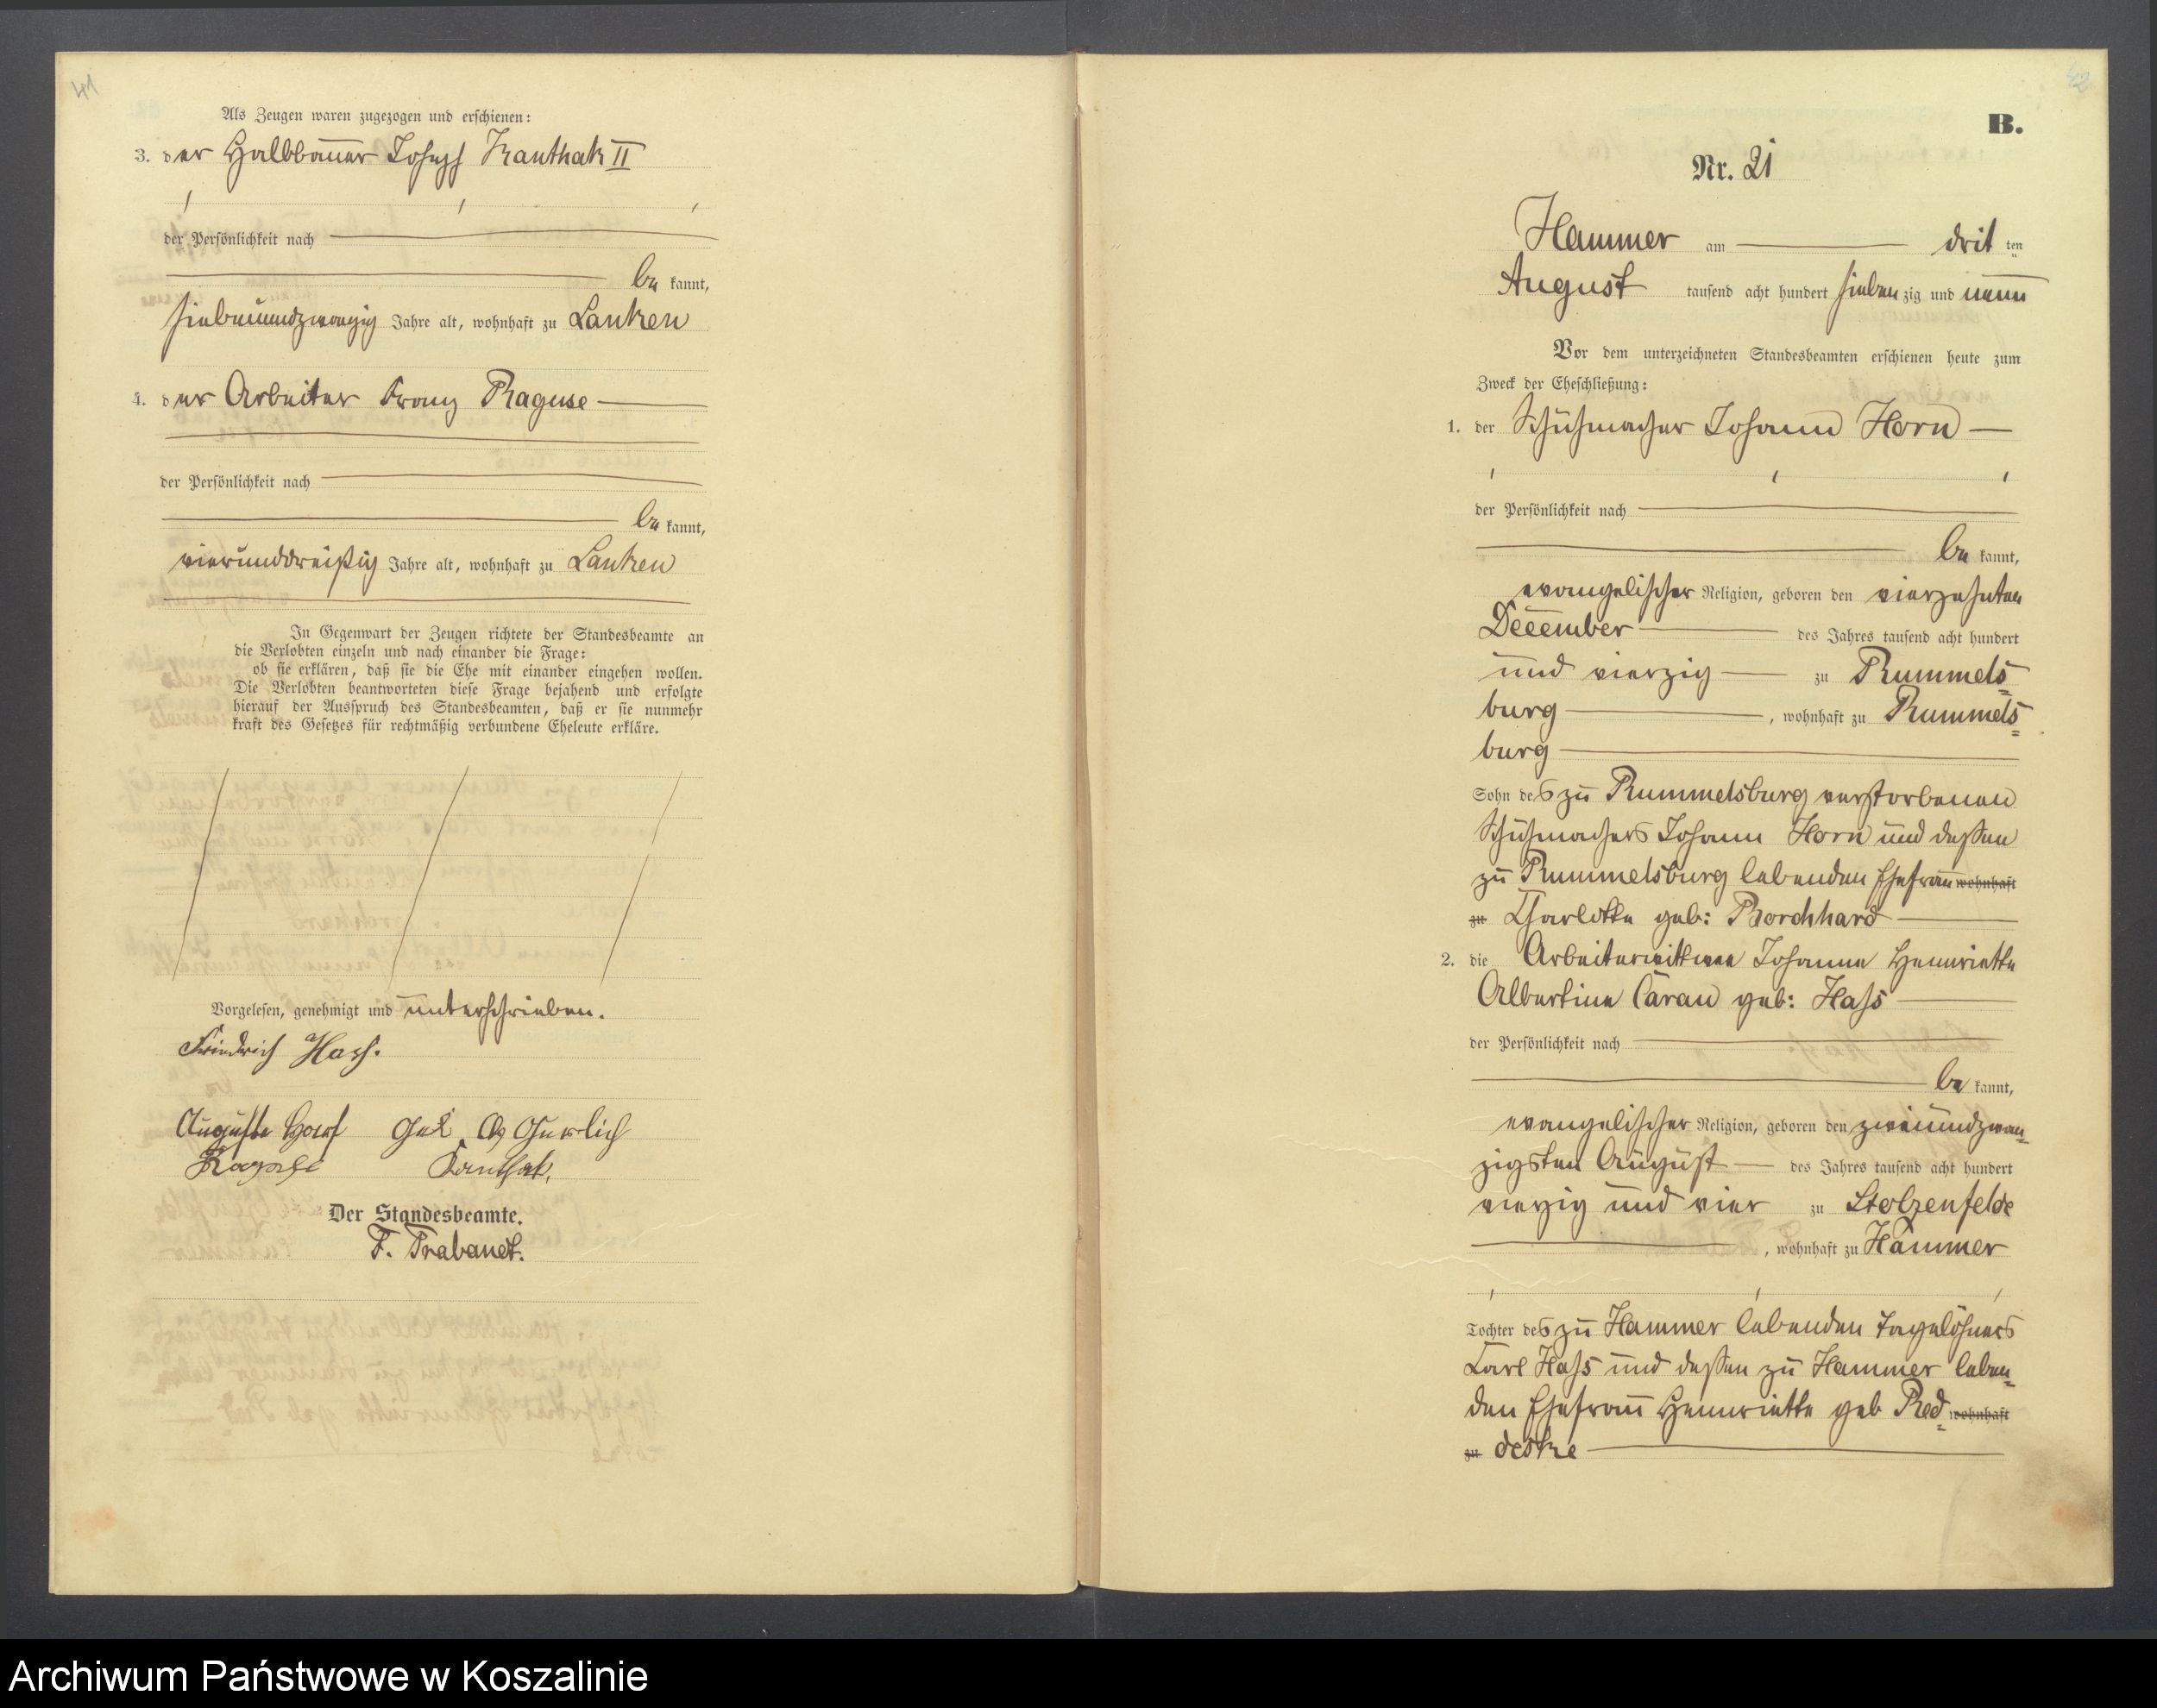 41
Als Zeugen waren zugezogen und erschienen:
3. der Halbbauer Joseph Kanthak II
der Persönlichkeit nach
be kannt,
siebenundzwanzig Jahre alt, wohnhaft zu Lanken
4. der Arbeiter Franz Raguse
der Persönlichkeit nach
be kannt,
vierunddreißig Jahre alt, wohnhaft zu Lanken
In Gegenwart der Zeugen richtete der Standesbeamte an
die Verlobten einzeln und nach einander die Frage:
ob sie erklären, daß sie die Ehe mit einander eingehen wollen.
Die Verlobten beantworteten diese Frage bejahend und erfolgte
hierauf der Ausspruch des Standesbeamten, daß er sie nunmehr
kraft des Gesetzes für rechtmäßig verbundene Eheleute erkläre.
Vorgelesen, genehmigt und unterschrieben.
Friedrich Hass.
Auguste geb. Gehrlich
Kanthak.
Der Standesbeamte.
F. Trabandt.
42
B.
Nr. 21
Hammer am drit ten
August tausend acht hundert sieben zig und neun
Vor dem unterzeichneten Standesbeamten erschienen heute zum
Zweck der Eheschließung:
1. der Schuhmacher Johann Horn
der Persönlichkeit nach
be kannt,
evangelischer Religion, geboren den vierzehnten
December des Jahres tausend acht hundert
und vierzig zu Rummels
burg, wohnhaft zu Rummels
burg
Sohn des zu Rummelsburg verstorbenen
Schuhmachers Johann Horn und dessen
zu Rummelsburg lebenden Ehefrau wohnhaft
zu Charlotte geb: Borchhard
2. die Arbeiterwittwe Johanne Hennriette
Albertine Caran geb: Hass
der Persönlichkeit nach
be kannt,
evangelischer Religion, geboren den zweiundzwan-
zigsten August des Jahres tausend acht hundert
vierzig und vier zu Stolzenfelde
, wohnhaft zu Hammer
Tochter des zu Hammer lebenden Tagelöhners
Carl Hass und dessen zu Hammer leben-
den Ehefrau Hennriette geb Red- wohnhaft
zu deske
Archiwum Państwowe w Koszalinie